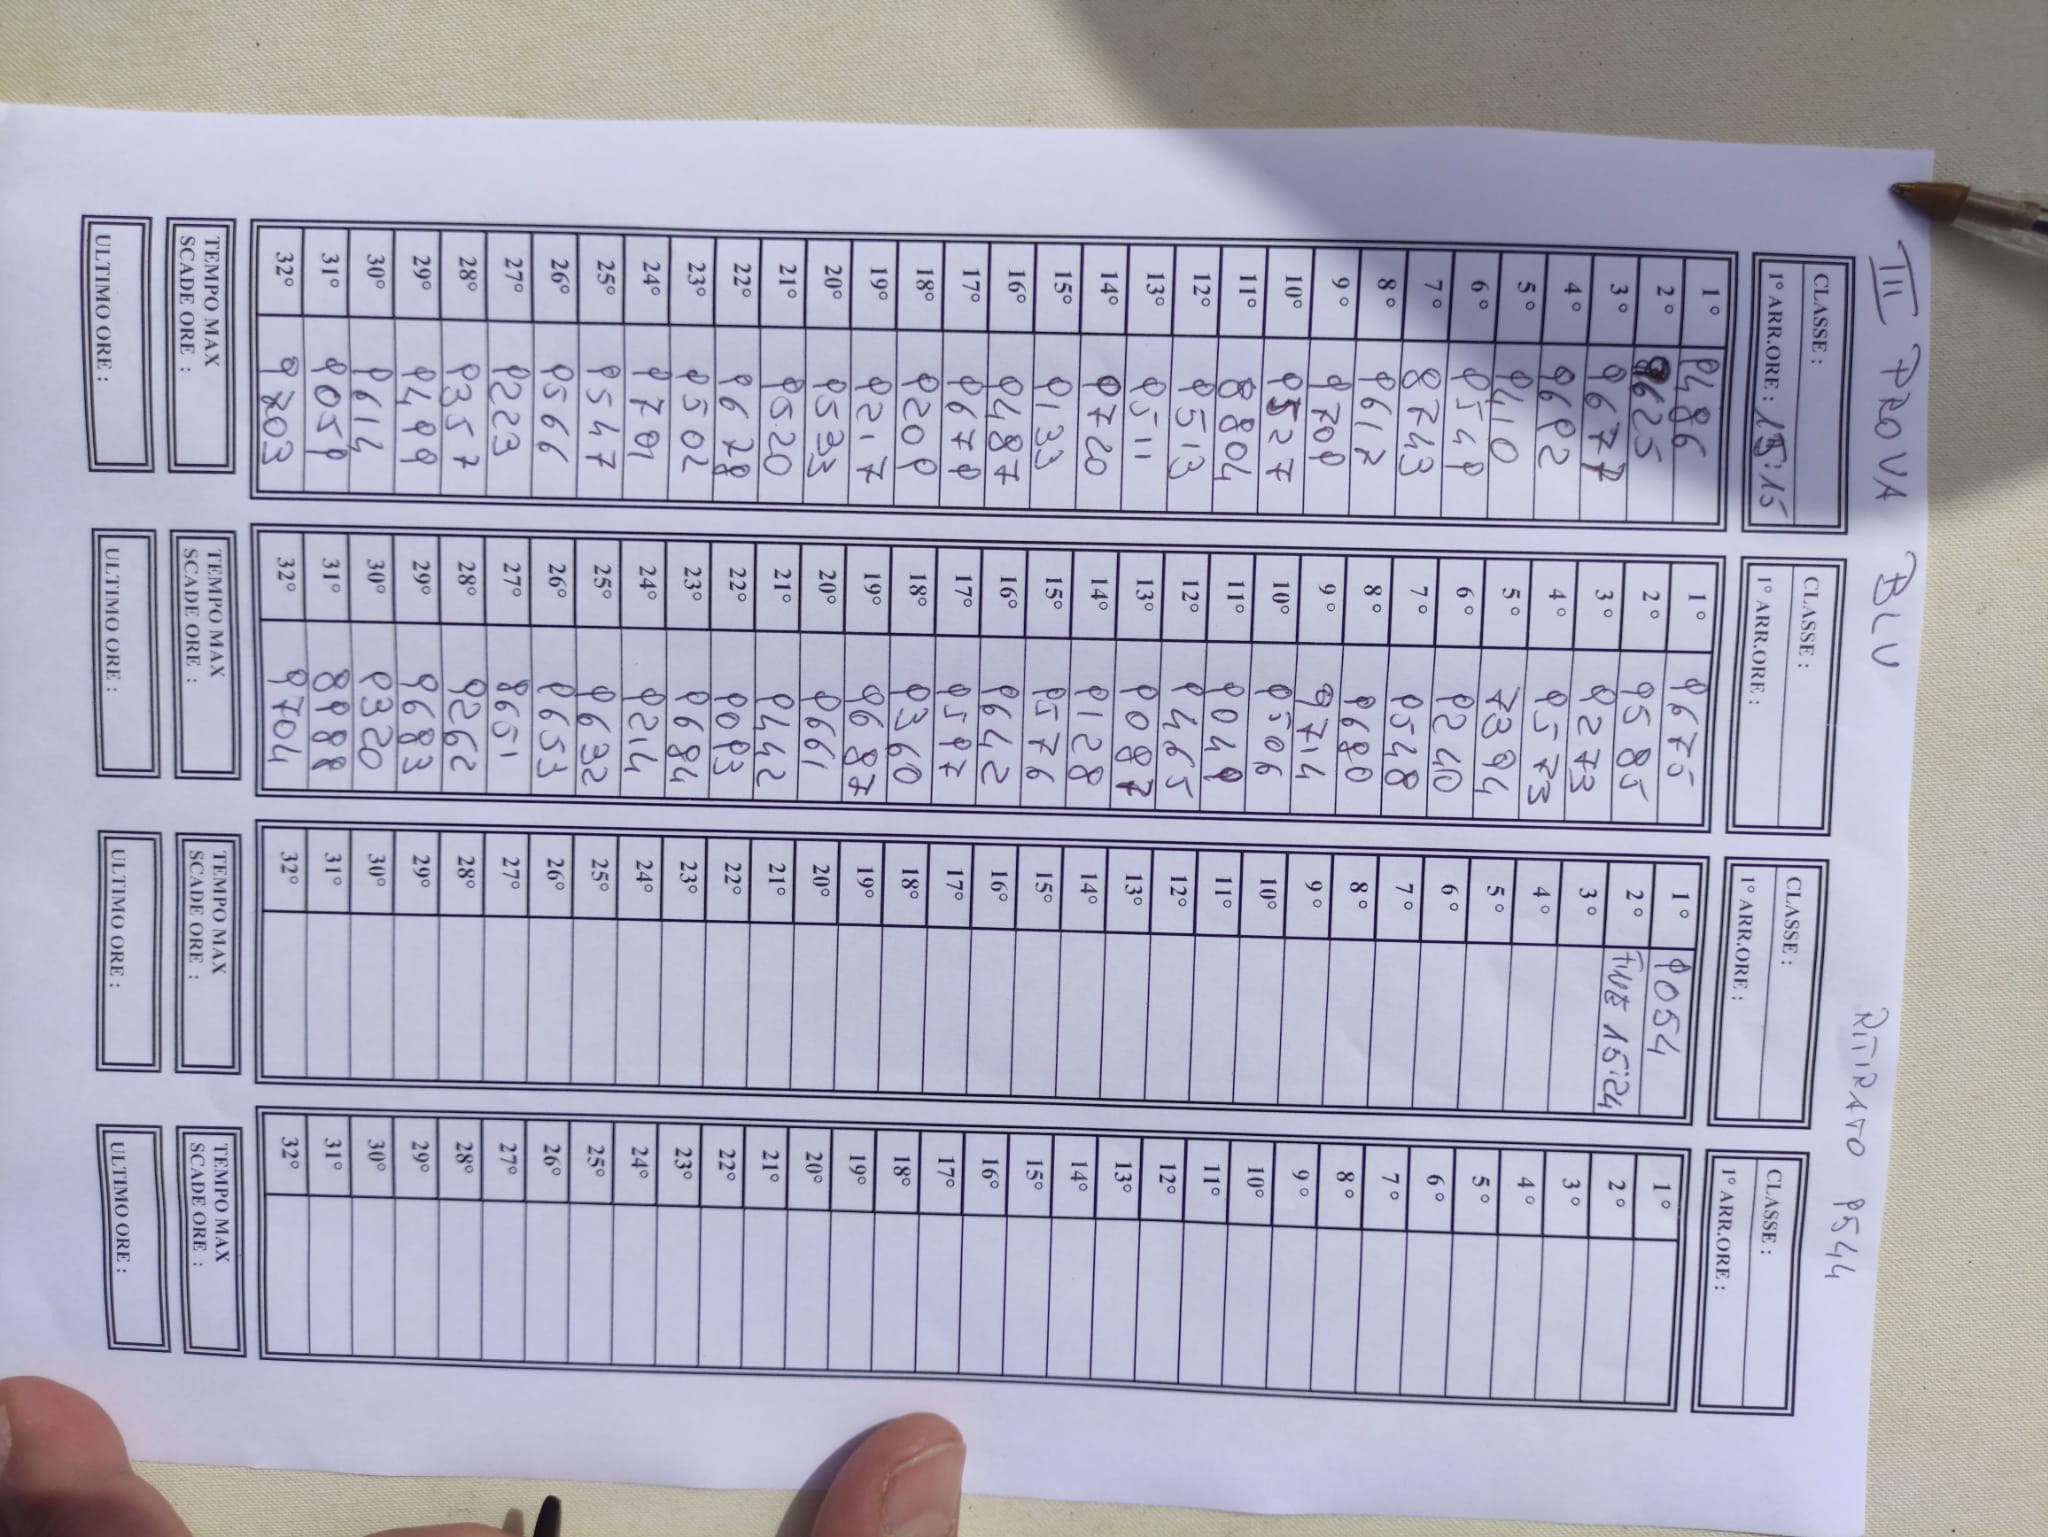 III PROVA BLU
RITIRATO 9544
CLASSE :
1° ARR.ORE : 15:15
1° 9486
2° 9625
3° 9677
4° 9692
5° 9410
6° 9549
7° 8743
8° 9617
9° 9709
10° 9527
11° 8804
12° 9513
13° 9511
14° 9720
15° 9133
16° 9487
17° 9679
18° 9209
19° 9217
20° 9533
21° 9520
22° 9678
23° 9502
24° 9701
25° 9547
26° 9566
27° 9223
28° 9357
29° 9499
30° 9614
31° 9059
32° 9703
TEMPO MAX
SCADE ORE :
ULTIMO ORE :
CLASSE :
1° ARR.ORE :
1° 9675
2° 9585
3° 9273
4° 9573
5° 7394
6° 9240
7° 9548
8° 9680
9° 9714
10° 9506
11° 9049
12° 9465
13° 9087
14° 9128
15° 9576
16° 9642
17° 9597
18° 9360
19° 9687
20° 9661
21° 9442
22° 9093
23° 9684
24° 9214
25° 9632
26° 9653
27° 8651
28° 9262
29° 9683
30° 9320
31° 8988
32° 9704
TEMPO MAX
SCADE ORE :
ULTIMO ORE :
CLASSE :
1° ARR.ORE :
1° 9054
2° FINE 15:24
3°
4°
5°
6°
7°
8°
9°
10°
11°
12°
13°
14°
15°
16°
17°
18°
19°
20°
21°
22°
23°
24°
25°
26°
27°
28°
29°
30°
31°
32°
TEMPO MAX
SCADE ORE :
ULTIMO ORE :
CLASSE :
1° ARR.ORE :
1°
2°
3°
4°
5°
6°
7°
8°
9°
10°
11°
12°
13°
14°
15°
16°
17°
18°
19°
20°
21°
22°
23°
24°
25°
26°
27°
28°
29°
30°
31°
32°
TEMPO MAX
SCADE ORE :
ULTIMO ORE :